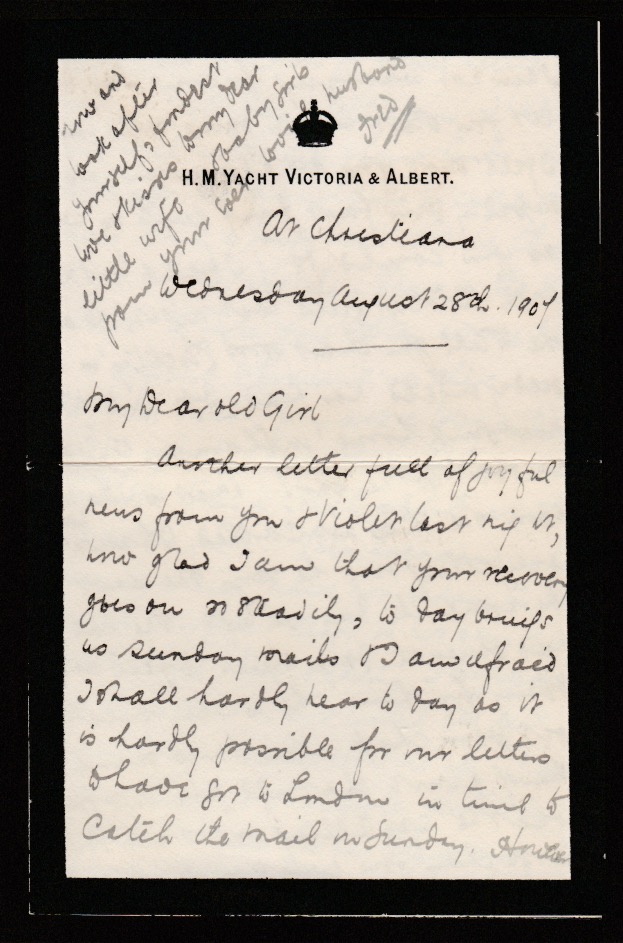 now and
look after
yourself, fondest
love & kisses to my dear
little wife & baby girls
from your ever loving husband
Fred
H.M. YACHT VICTORIA & ALBERT.
At Christiana
Wednesday August 28th. 1907
My Dear old Girl
Another letter full of joyful
news from you & Violet last night,
how glad I am that your recovery
goes on so steadily, to day brings
us Sunday mails & I am afraid
I shall hardly hear to day as it
is hardly possible for our letters
to have got to London in time to
catch the mail on Sunday. However